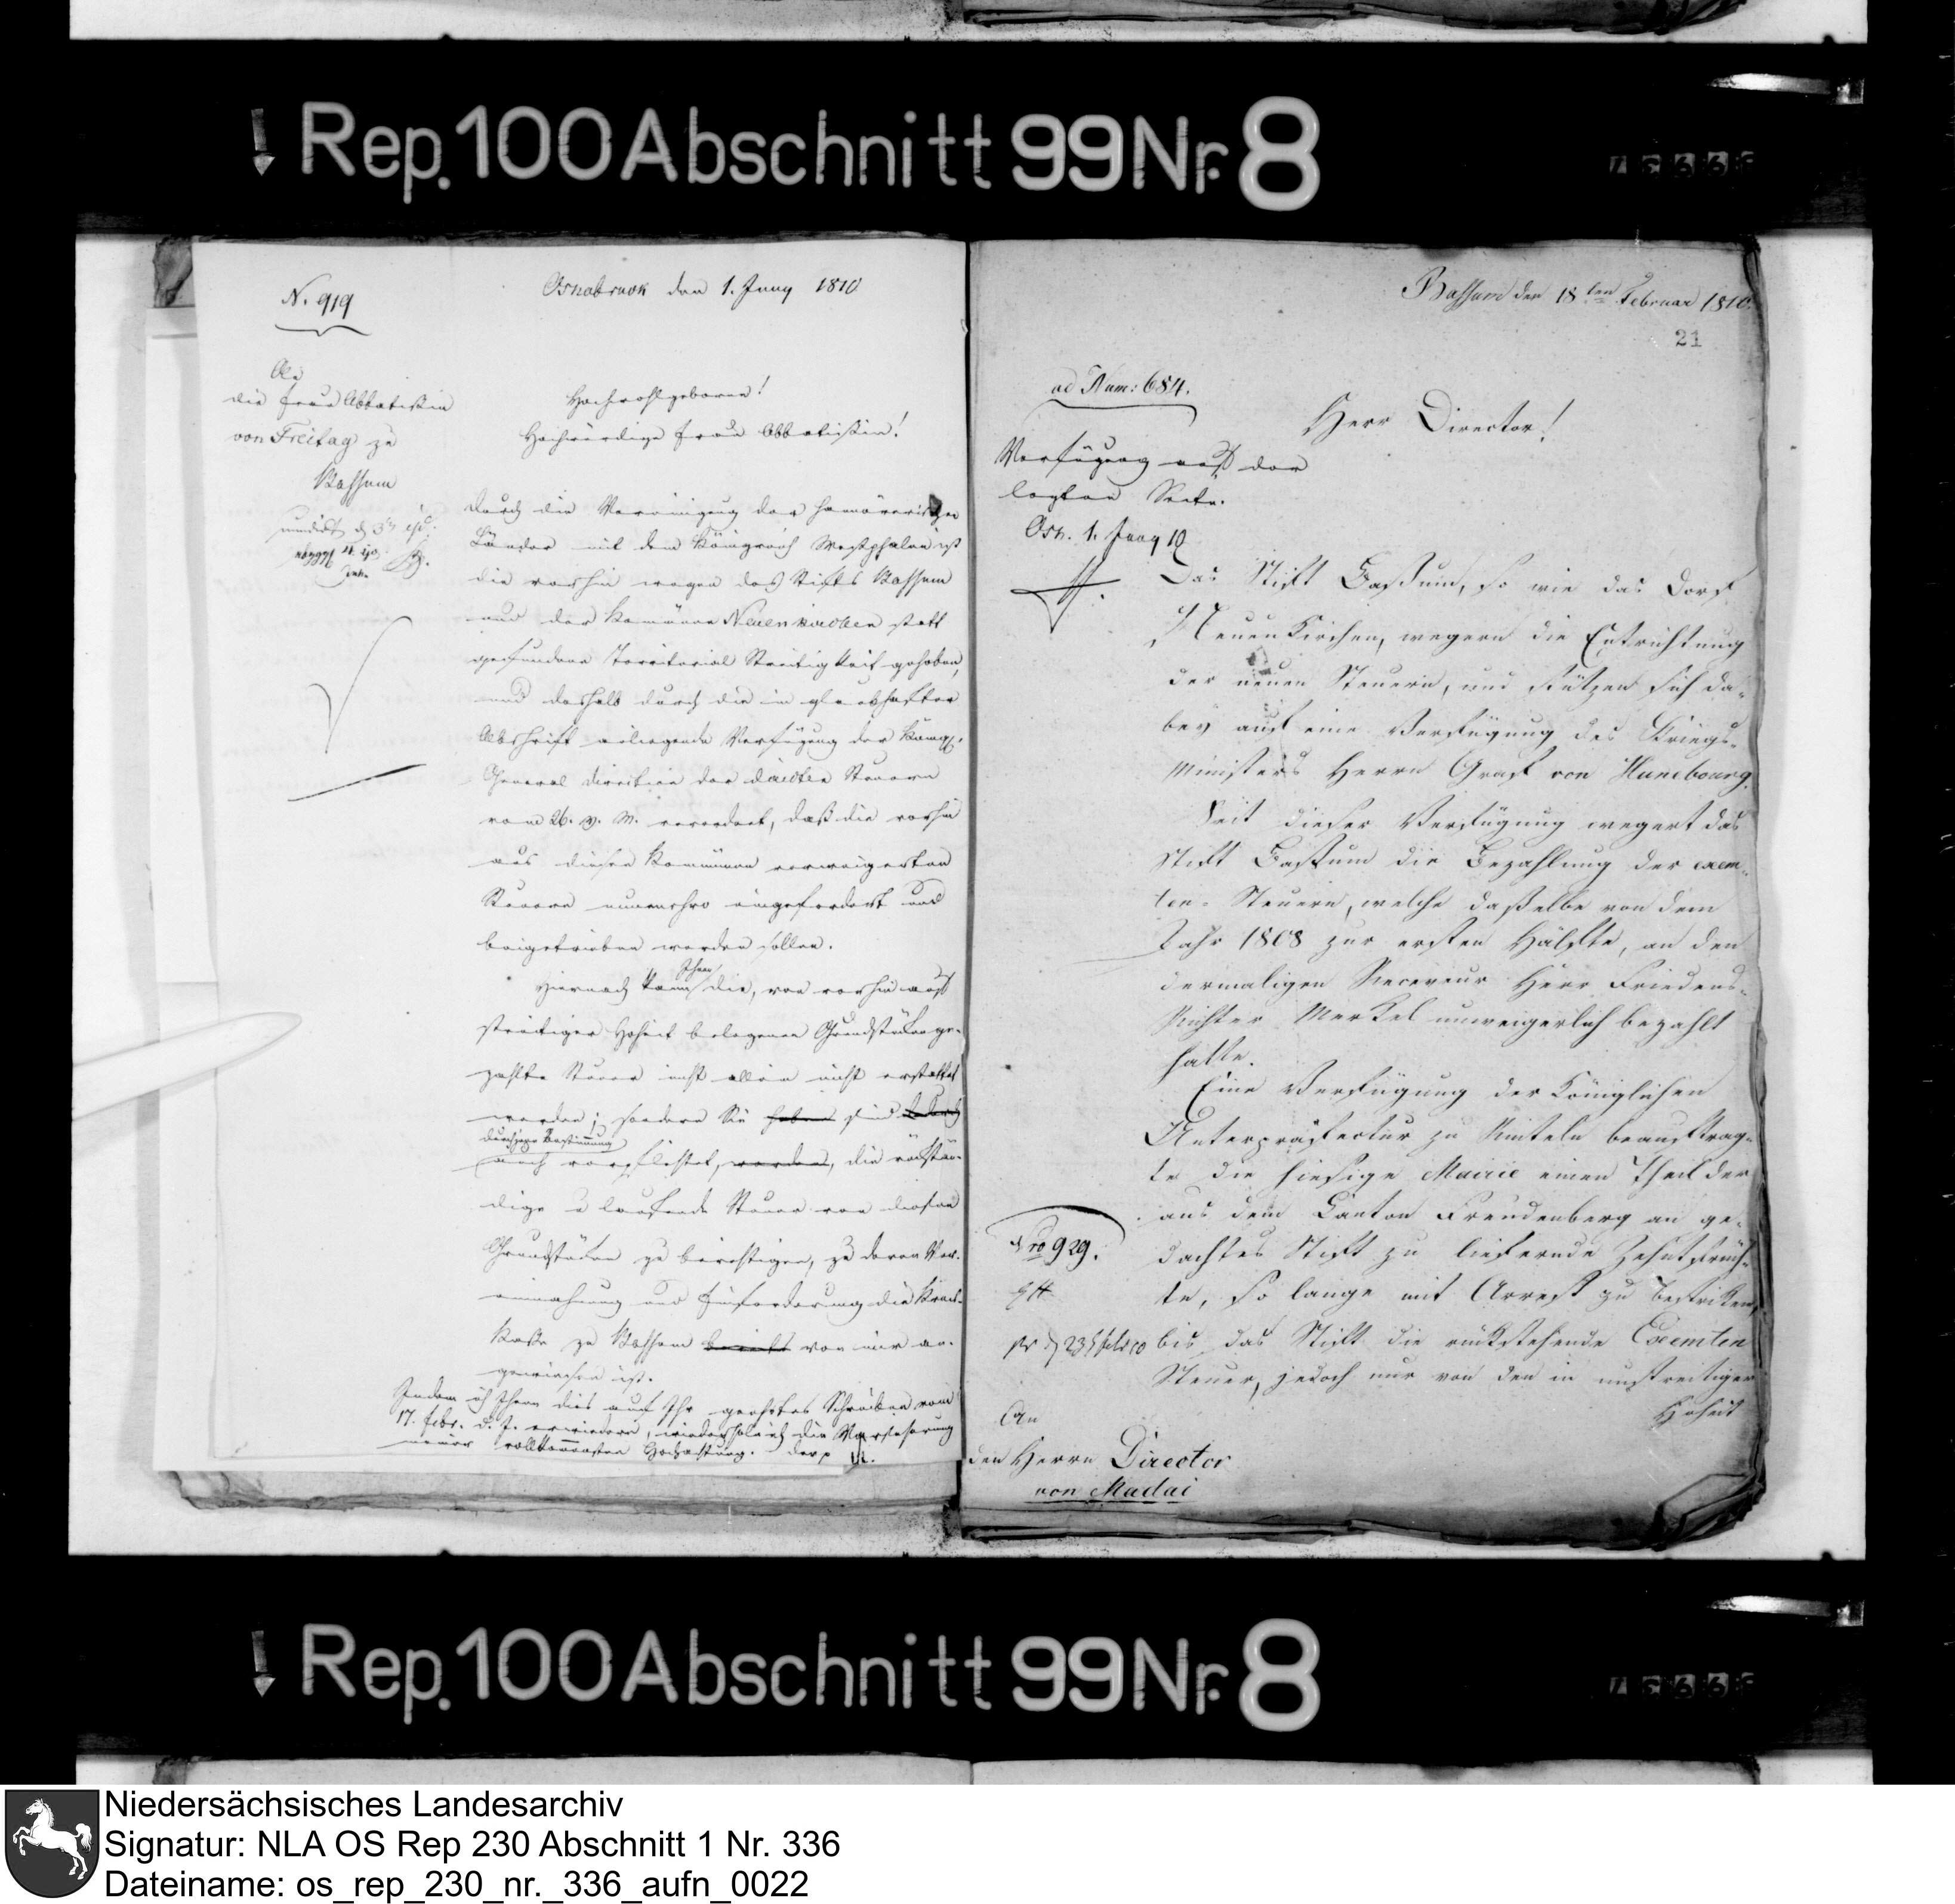 Rep. 100 Abschnitt 99 Nr. 8
N. 919
Osnabruck den 1. Juny 1810
An
die Frau Abbatissin
von Freitag zu
Bassum
Hochwohlgeborne!
Hochwürdige Frau Abbatissin!
Durch die Vereinigung der hannöverischen
Länder mit dem Königreich Westphalen ist
die vorhin wegen des Stifts Bassum
und der Kommüne Neuenkirchen statt
gefundene Territorial Streitigkeit gehoben,
und deshalb durch die in glaubhafter
Abschrift anliegende Verfügung der Königl.
General Direction der directen Steuern
vom 26. v. M. verordnet, daß die vorhin
aus diesen Kommünen verweigerten
Steuern nunmehro eingefordert und
beigetrieben werden sollen.
Hiernach kann Ihnen die, von vorhin auf
streitiger Hoheit belegenen Grundstücken ge-
zahlte Steuer nicht allein nicht erstattet
werden; sondern Sie haben sind
durch jene Bestimmung
auch verpflichtet, werden, die rückstän-
dige u laufende Steuer von diesen
Grundstücken zu berichtigen, zu deren Ver-
einnahmung und Einforderung die Kreis-
Kasse zu Bassum bereits von mir an-
gewiesen ist.
Indem ich Ihnen dies auf Ihr geehrtes Schreiben vom
17. Febr. d. J. erwiedere, wiederhole ich die Versicherung
meiner vollkommensten Hochachtung.
Bassum den 18ten Februar 1810.
21
ad Num: 684.
Herr Director!
Verfügung auf der
letzten Seite.
Osn. 1. Juny 10
Das Stift Bassum, so wie das Dorf
Neuenkirchen, wegern die Entrichtung
der neuen Steuern, und stützen sich da-
bey auf eine Verfügung des Kriegs-
Ministers Herrn Graf von Hunebourg.
Seit dieser Verfügung wegert das
Stift Bassum die Bezahlung der exem-
ten-Steuern, welche daßelbe von dem
Jahr 1808 zur ersten Hälfte, an den
dermaligen Receveur Herr Friedens-
Richter Merkel unweigerlich bezahlt
hatte.
Eine Verfügung der Königlichen
Unterpräfectur zu Rinteln beauftrag-
te die hiesige Mairie einen Theil der
aus dem Canton Freudenberg an ge-
dachtes Stift zu liefernde Zehntfrüch-
te, so lange mit Arrest zu bestricken,
bis das Stift die rückstehende Exemten
Steuer, jedoch nur von den in unstreitiger
Hoheit
Nro 929.
An
den Herrn Director
von Madai
Rep. 100 Abschnitt 99 Nr. 8
Niedersächsisches Landesarchiv
Signatur: NLA OS Rep 230 Abschnitt 1 Nr. 336
Dateiname: os_rep_230_nr._336_aufn_0022